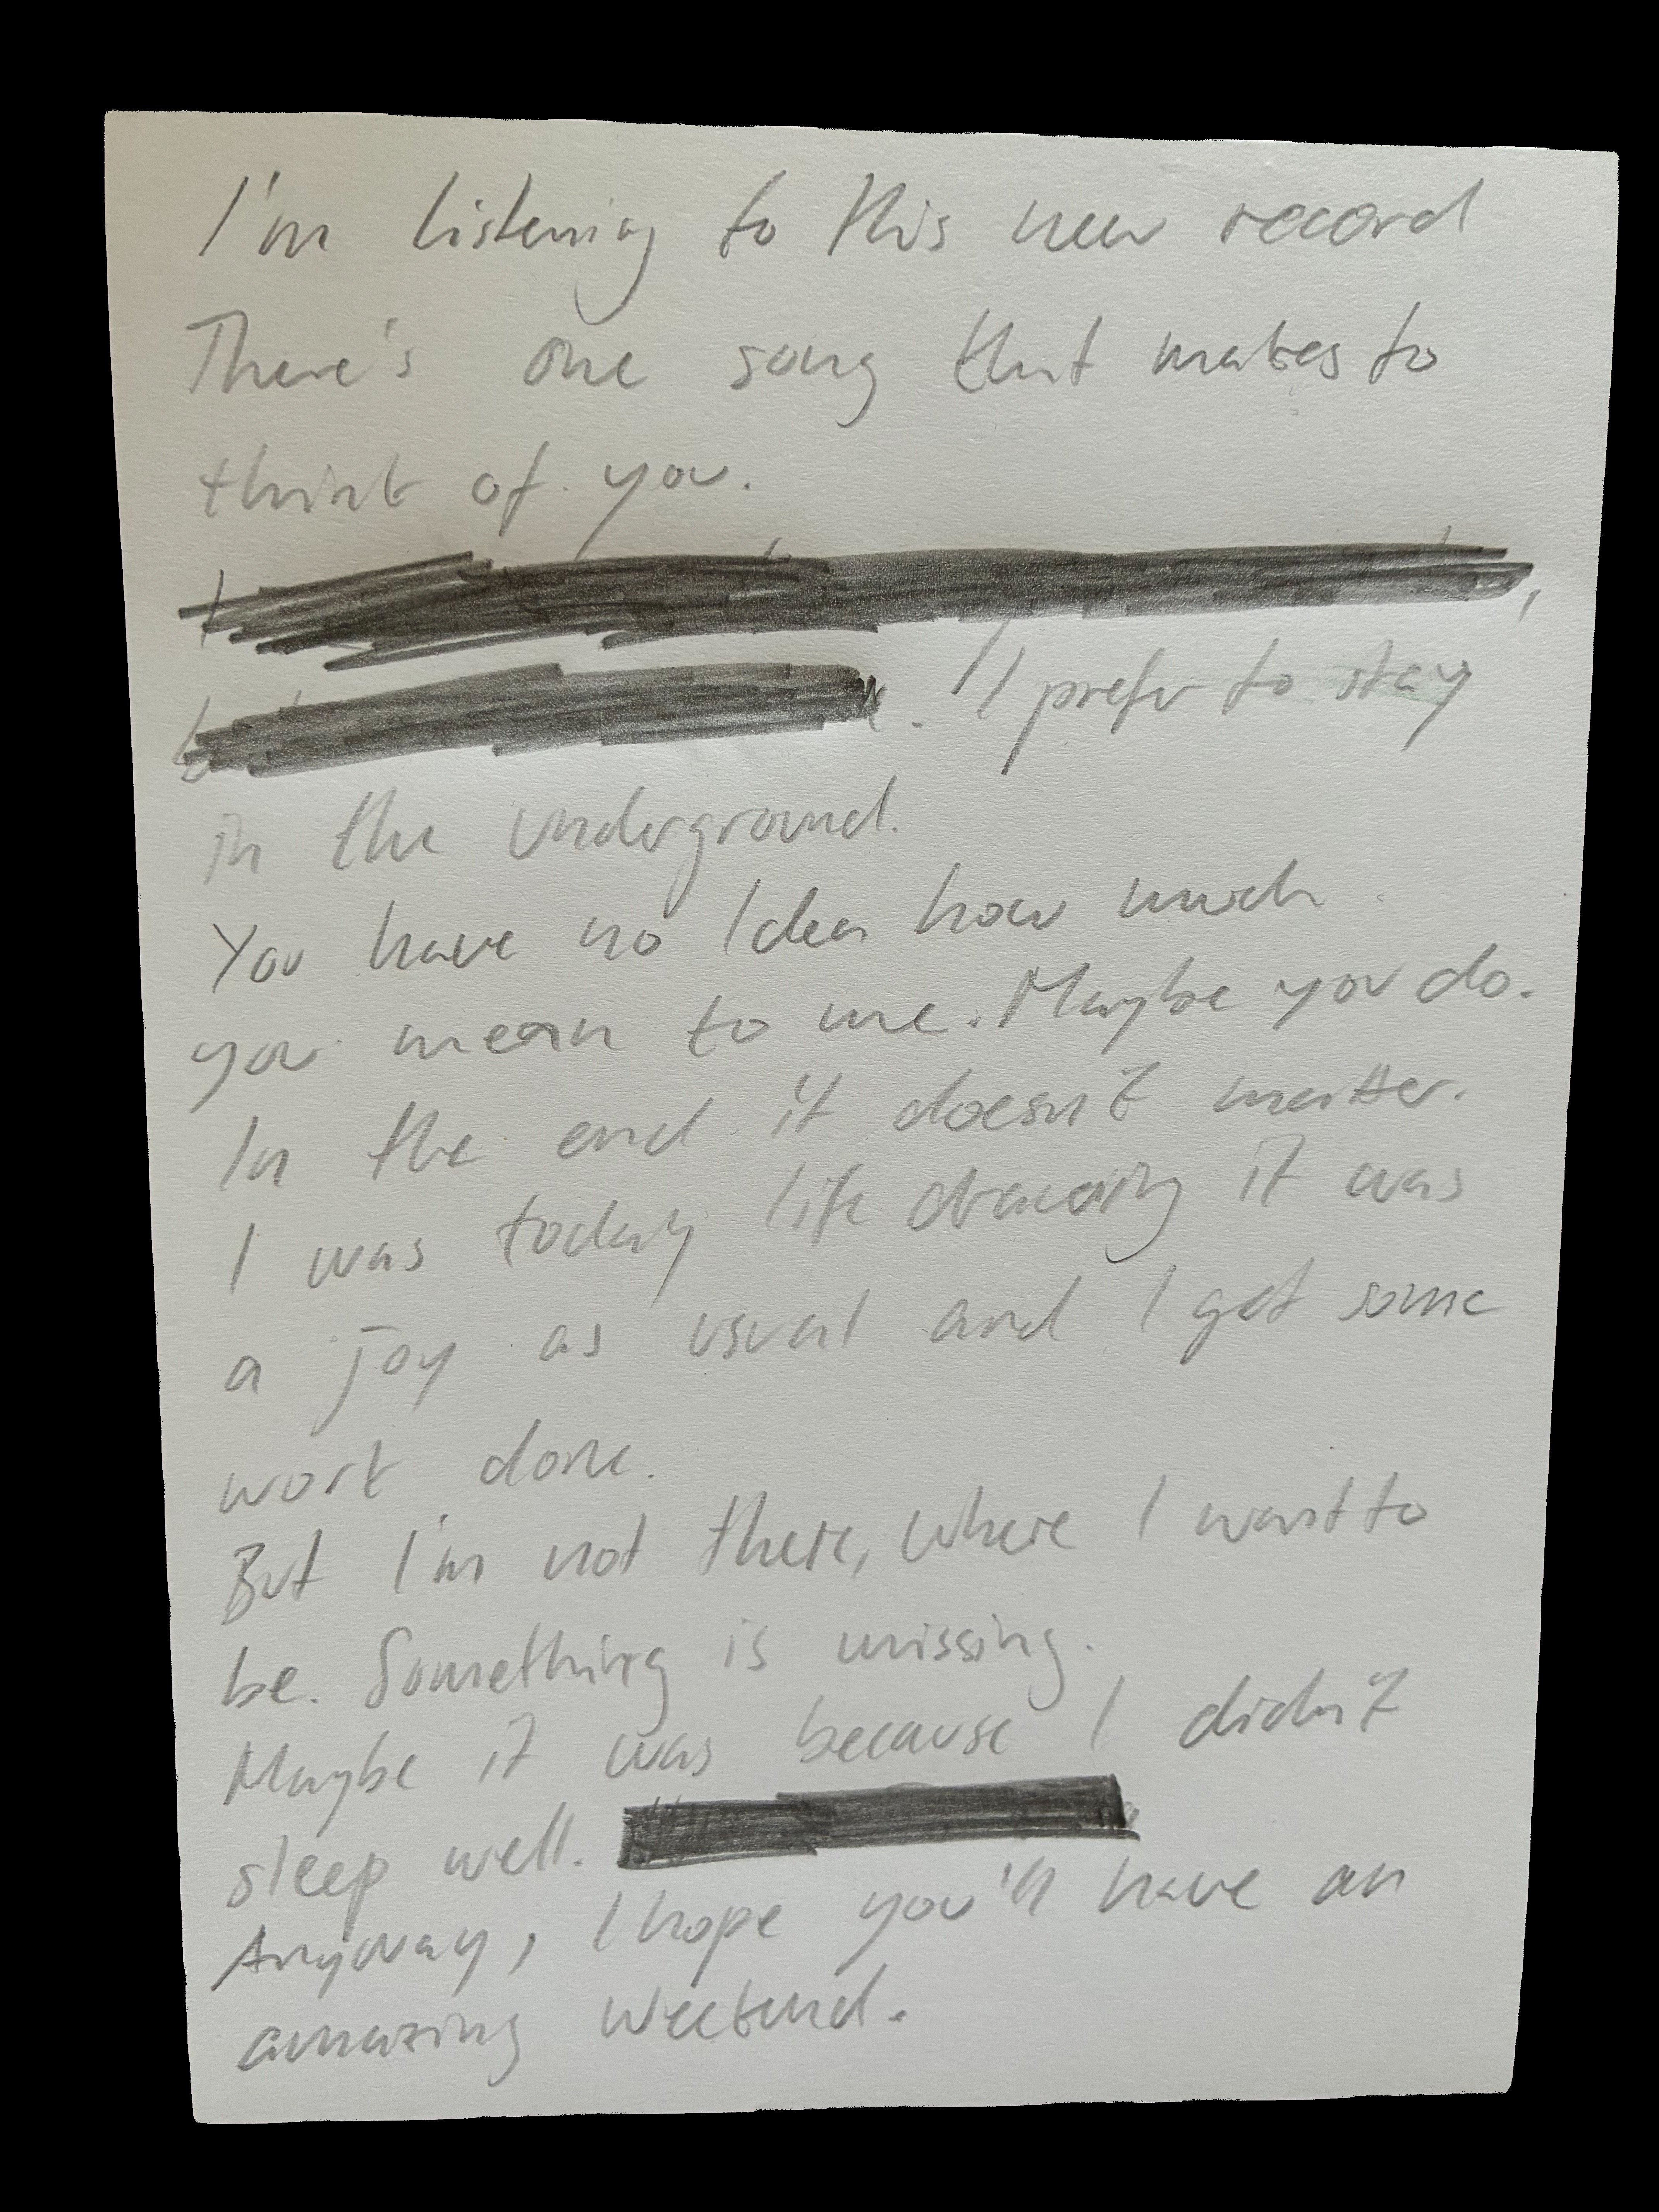 I'm listening to this new record
There's one song that makes to
think of you.
. I prefer to stay
in the underground.
You have no Idea how much
you mean to me. Maybe you do.
In the end it doesn't matter.
I was today life drawing it was
a joy as usual and I get some
work done.
But I'm not there, where I want to
be. Something is missing.
Maybe it was because I didn't
sleep well.
Anyway, I hope you'll have an
amazing weekend.